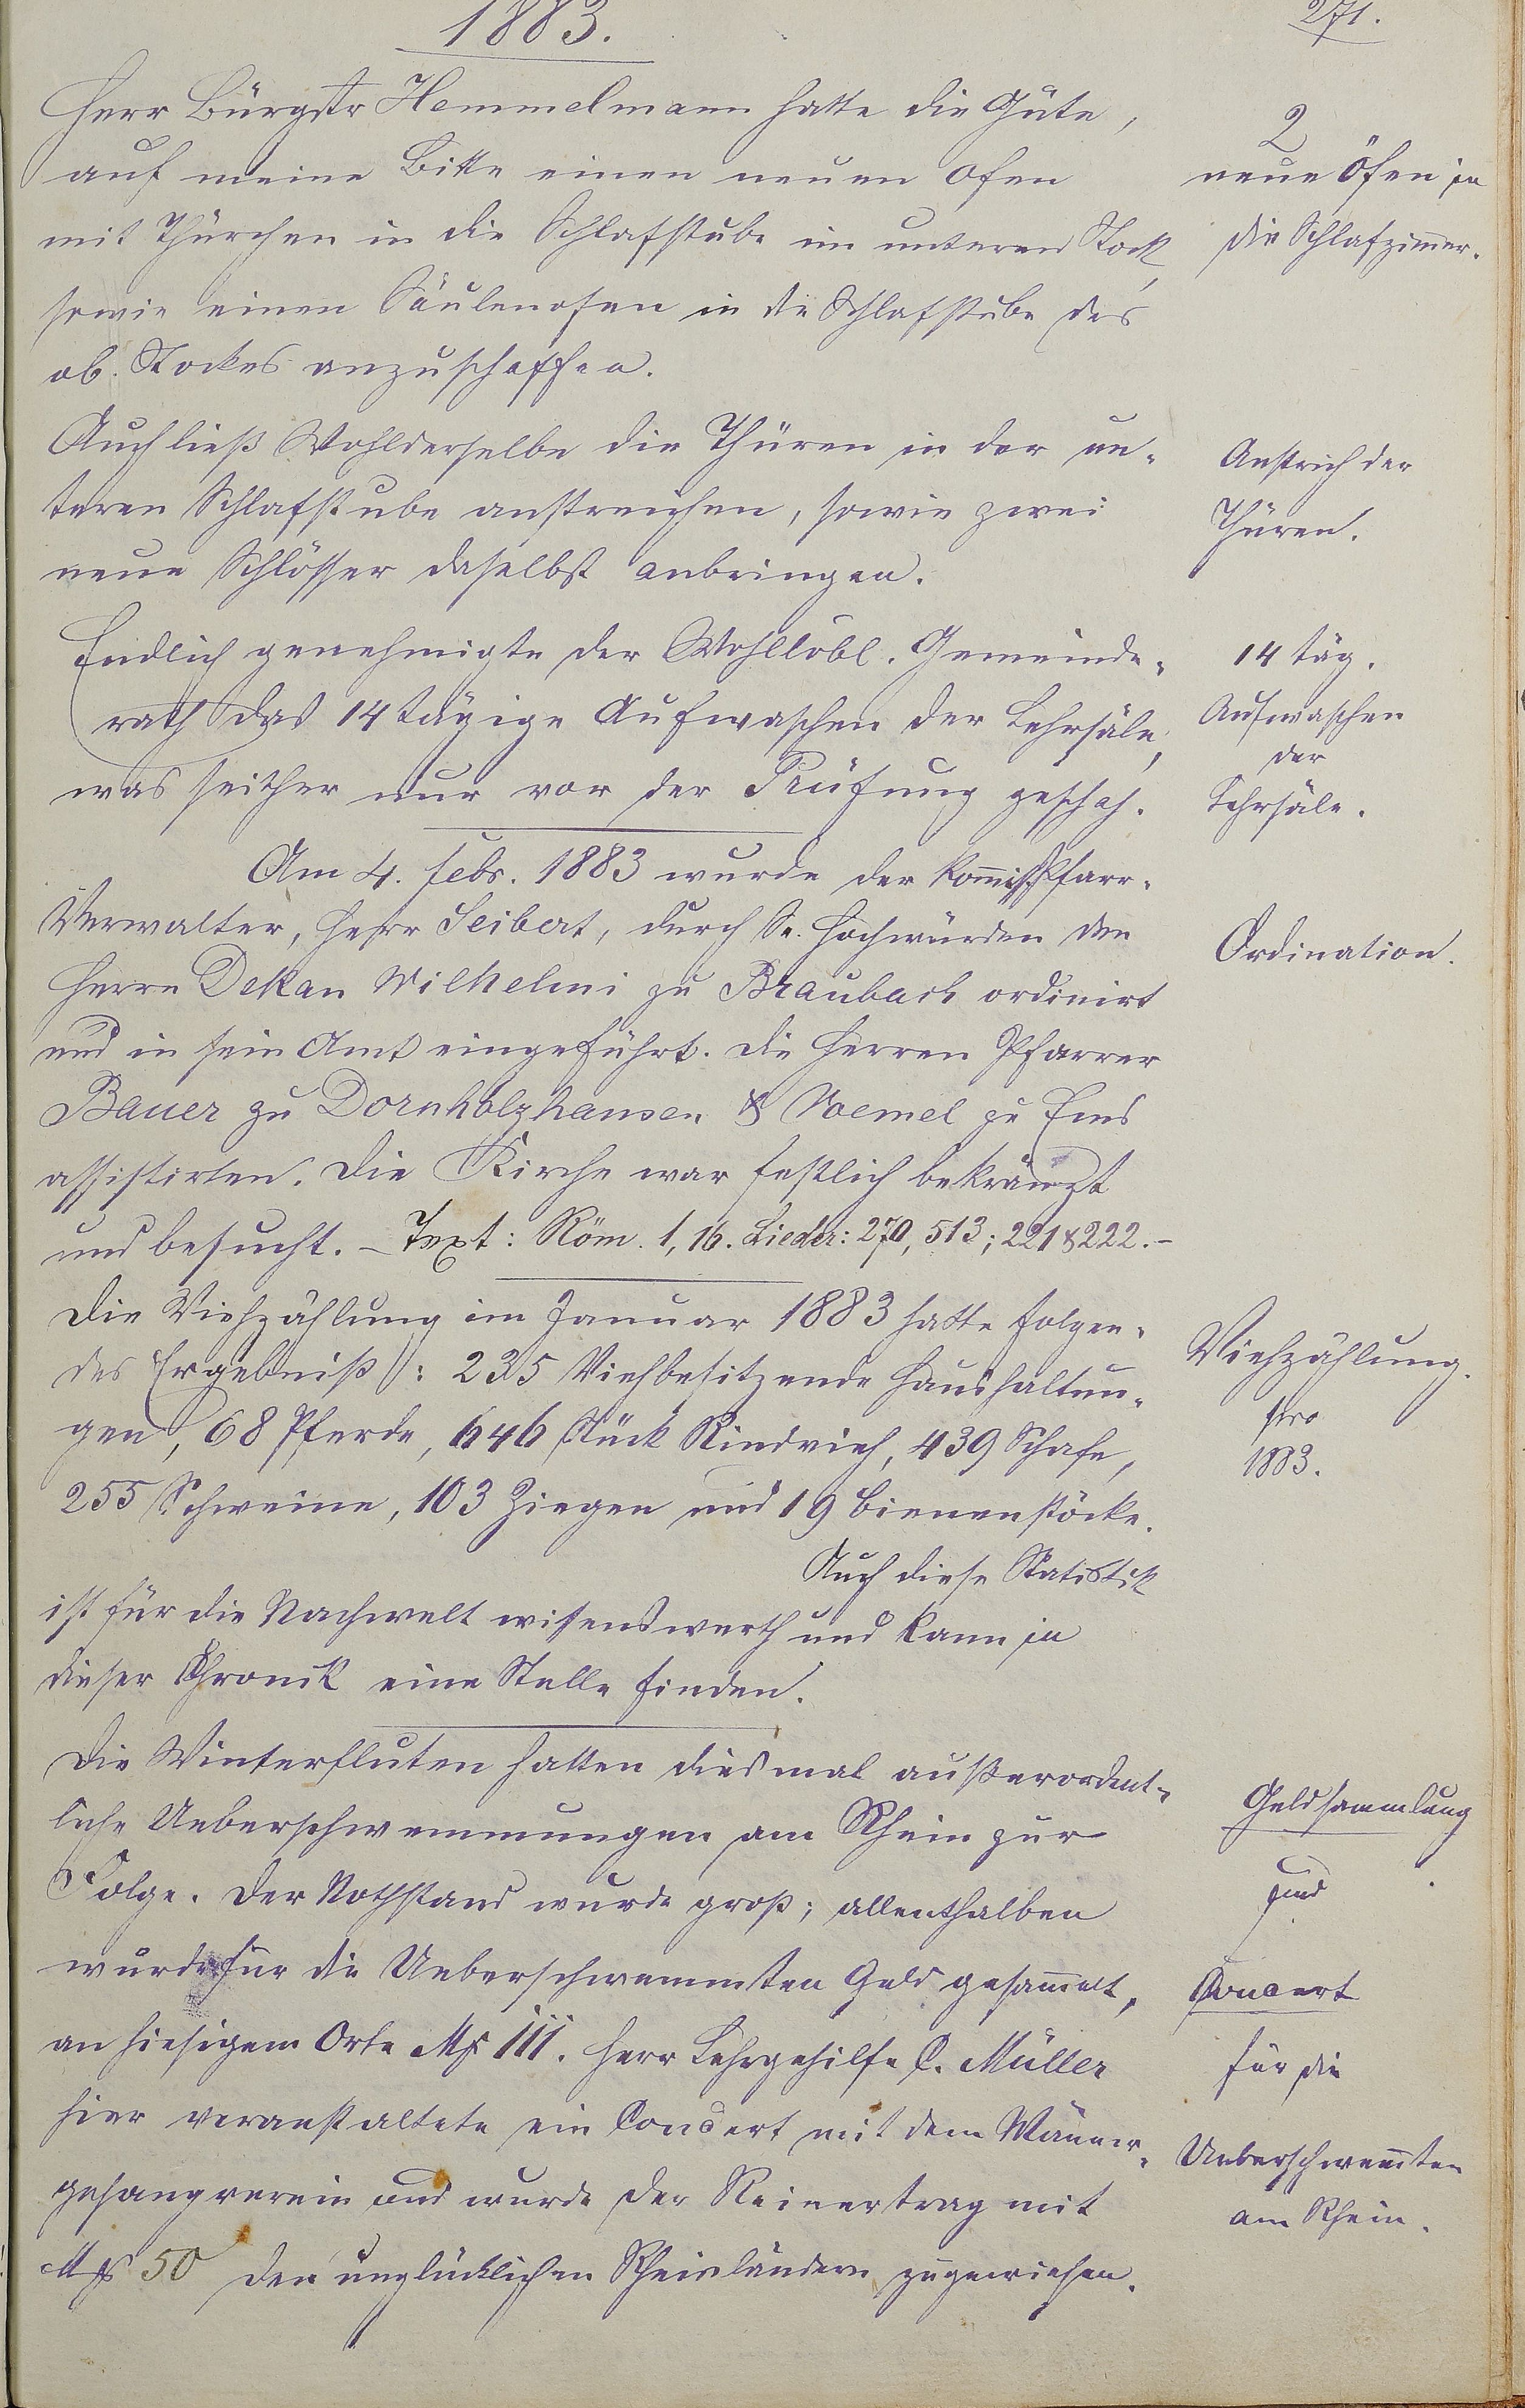 1883.
271.
Herr Bürgstr Hemmelmann hatte die Güte,
auf meine Bitte einen neuen Ofen
mit Thürchen in die Schlafstube im unteren Stock,
sowie einen Säulenofen in die Schlafstube des
ob. Stockes anzuschaffen.
2
neue Öfen in
die Schlafzimmer.
Auch ließ Wohlderselbe die Thüren in der un-
teren Schlafstube anstreichen, sowie zwei
neue Schlösser daselbst anbringen.
Anstrich der
Thüren.
Endlich genehmigte der Wohllöbl. Gemeinde-
rath das 14 tägige Aufwaschen der Lehrsäle,
was seither nur vor der Prüfung geschah.
14 täg.
Aufwaschen
der
Lehrsäle.
Am 4. Febr. 1883 wurde der Kom̅iss. Pfarr-
Verwalter, Herr Seibert, durch Se. Hochwürden den
Herrn Dekan Wilhelmi zu Braubach ordinirt
und in sein Amt eingeführt. Die Herren Pfarrer
Bauer zu Dornholzhausen & Voemel zu Ems
assistirten. Die Kirche war festlich bekränzt
und besucht. – Text: Röm. 1, 16. Lieder: 270, 513; 221 & 222. –
Ordination.
Die Viehzählung im Januar 1883 hatte folgen-
des Ergebniß: 235 Viehbesitzende Haushaltun-
gen, 68 Pferde, 646 Stück Rindvieh, 439 Schafe,
255 Schweine, 103 Ziegen und 19 Bienenstöcke.
Auch diese Statistik
ist für die Nachwelt wissenswerth und kann in
dieser Chronik eine Stelle finden.
Viehzählung.
pro
1883.
Die Winterfluten hatten diesmal außerordent-
liche Ueberschwemmungen am Rhein zur
Folge. Der Nothstand wurde groß; allenthalben
wurde für die Ueberschwemmten Geld gesam̅elt,
an hiesigem Orte Mk 111. Herr Lehrgehilfe C. Müller
hier veranstaltete ein Concert mit dem Männer-
gesangverein und wurde der Reinertrag mit
Mk 50 den unglücklichen Rheinländern zugewiesen.
Geldsammlung
und
Concert
für die
Ueberschwem̅ten
am Rhein.